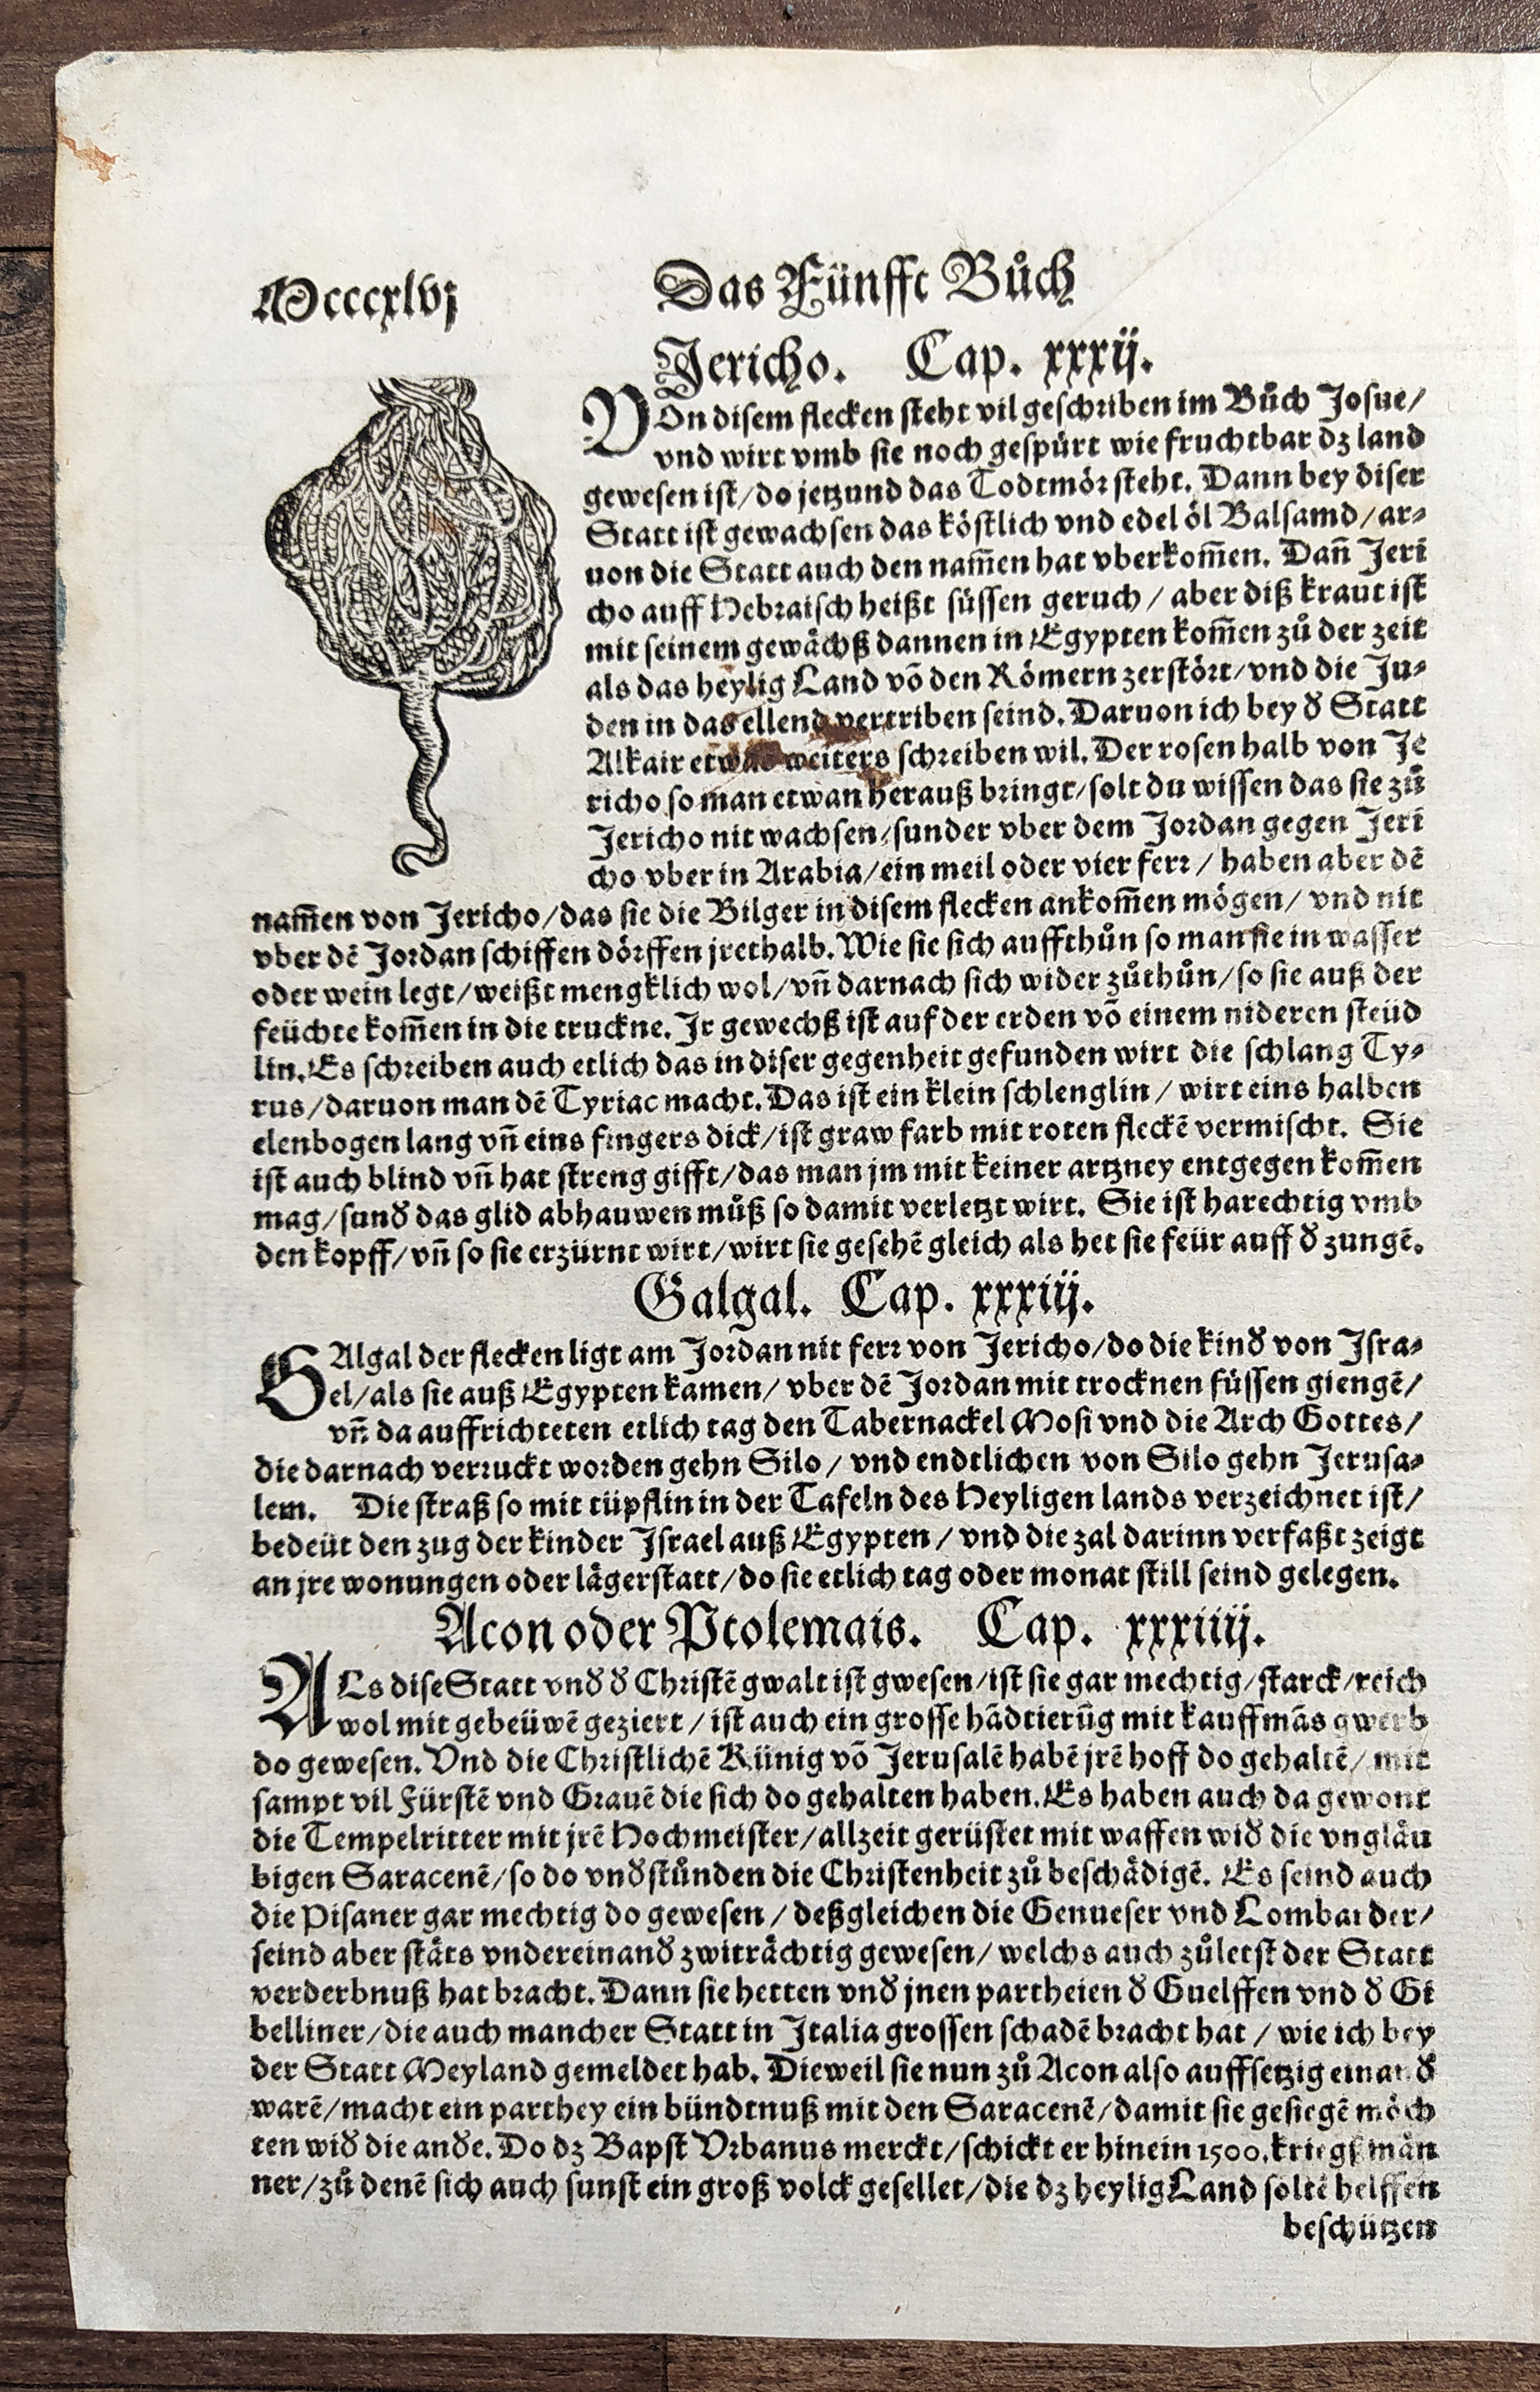 Mcccxlvj
Das Fünfft Bůch
Jericho. Cap. xxxij.
VOn disem flecken steht vil geschriben im Bůch Josue/
vnd wirt vmb sie noch gespürt wie fruchtbar dz land
gewesen ist/do jetzund das Todtmör steht. Dann bey diser
Statt ist gewachsen das köstlich vnd edel öl Balsamd/ar⸗
uon die Statt auch den nam̃en hat vberkom̃en. Dañ Jeri
cho auff Hebraisch heißt süssen geruch / aber diß kraut ist
mit seinem gewächß dannen in Egypten kom̃en zů der zeit
als das heylig Land võ den Römern zerstört/vnd die Ju⸗
den in das ellend vertriben seind. Daruon ich bey ð Statt
Alkair etwas weiters schreiben wil. Der rosen halb von Je
richo so man etwan herauß bringt/solt du wissen das sie zů
Jericho nit wachsen/sunder vber dem Jordan gegen Jeri
cho vber in Arabia/ein meil oder vier ferr / haben aber dẽ
nam̃en von Jericho/das sie die Bilger in disem flecken ankom̃en mögen/ vnd nit
vber dẽ Jordan schiffen dörffen jrethalb. Wie sie sich auffthůn so man sie in wasser
oder wein legt/weißt mengklich wol/vñ darnach sich wider zůthůn/so sie auß der
feüchte kom̃en in die truckne. Jr gewechß ist auf der erden võ einem nideren steüd
lin. Es schreiben auch etlich das in diser gegenheit gefunden wirt die schlang Ty⸗
rus/daruon man dẽ Tyriac macht. Das ist ein klein schlenglin / wirt eins halben
elenbogen lang vñ eins fingers dick/ist graw farb mit roten fleckẽ vermischt. Sie
ist auch blind vñ hat streng gifft/das man jm mit keiner artzney entgegen kom̃en
mag/sunð das glid abhauwen můß so damit verletzt wirt. Sie ist harechtig vmb
den kopff/vñ so sie erzürnt wirt/wirt sie gesehẽ gleich als het sie feür auff ð zungẽ.
Galgal. Cap. xxxiij.
GAlgal der flecken ligt am Jordan nit ferr von Jericho/do die kinð von Isra⸗
el/als sie auß Egypten kamen/ vber dẽ Jordan mit trocknen füssen giengẽ/
vñ da auffrichteten etlich tag den Tabernackel Mosi vnd die Arch Gottes/
die darnach verruckt worden gehn Silo / vnd endtlichen von Silo gehn Jerusa⸗
lem. Die straß so mit tüpflin in der Tafeln des Heyligen lands verzeichnet ist/
bedeüt den zug der kinder Israel auß Egypten / vnd die zal darinn verfaßt zeigt
an jre wonungen oder lägerstatt/do sie etlich tag oder monat still seind gelegen.
Acon oder Ptolemais. Cap. xxxiiij.
ALs dise Statt vnð ð Christẽ gwalt ist gwesen/ist sie gar mechtig/starck/reich
wol mit gebeüwẽ geziert / ist auch ein grosse hãdtierũg mit kauffmãs gwerb
do gewesen. Vnd die Christlichẽ Künig võ Jerusalẽ habẽ jrẽ hoff do gehaltẽ/ mit
sampt vil Fürstẽ vnd Grauẽ die sich do gehalten haben. Es haben auch da gewont
die Tempelritter mit jrẽ Hochmeister/allzeit gerüstet mit waffen wið die vngläu
bigen Saracenẽ/so do vnðstůnden die Christenheit zů beschädigẽ. Es seind auch
die Pisaner gar mechtig do gewesen / deßgleichen die Genueser vnd Lombarder/
seind aber stäts vndereinanð zwiträchtig gewesen/ welchs auch zůletst der Statt
verderbnuß hat bracht. Dann sie hetten vnð jnen partheien ð Guelffen vnd ð Gi
belliner/die auch mancher Statt in Italia grossen schadẽ bracht hat / wie ich bey
der Statt Meyland gemeldet hab. Dieweil sie nun zů Acon also auffsetzig einanð
warẽ/macht ein parthey ein bündtnuß mit den Saracenẽ/damit sie gesiegẽ möch
ten wið die anðe. Do dz Bapst Vrbanus merckt/schickt er hinein 1500. kriegßmän
ner/zů denẽ sich auch sunst ein groß volck gesellet/die dz heylig Land soltẽ helffen
beschützen